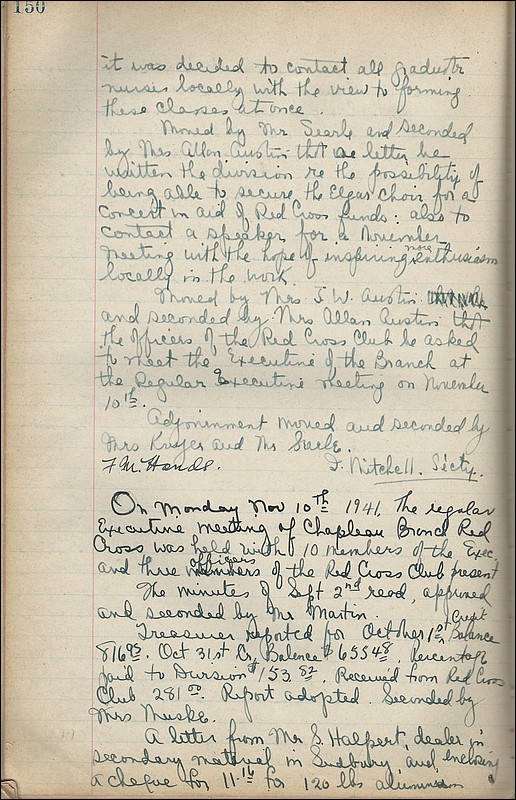 150
it was decided to contact all graduate
nurses locally with the view to forming
these classes at once.
Moved by Mr Searle and seconded
by Mrs Allan Austin that a letter be
written the division re the possibility of
being able to secure the Elgar Choir for a
concert in aid of Red Cross funds: also to
contact a speaker for a November
meeting with the hope of inspiring more enthusiasm
locally in the work.
Moved by Mrs J. W. Austin
and seconded by Mrs Allan Austin that
the officers of the Red Cross Club be asked
to meet the Executive of the Branch at
the Regular Executive meeting on November
10th.
Adjournment moved and seconded by
Mrs Kruger and Mr Searle.
F. M. Hands. F. Mitchell. Secty.
On Monday Nov 10th 1941, The regular
Executive meeting of Chapleau Branch Red
Cross was held with 10 members of the Exec.
and three officers of the Red Cross Club present
The minutes of Sept 2nd read, approved
and seconded by Mr Martin.
Treasurer reported for October 1st Credit Balance
816.95. Oct 31st Cr. Balance $655.48. Percentage
paid to Division $153.82. Received from Red Cross
Club 281.00. Report adopted. Seconded by
Mrs Muske.
A letter from Mr S. Halpert, dealer in
secondary material in Sudbury, and enclosing
a cheque for 11.16 for 120 lbs aluminum